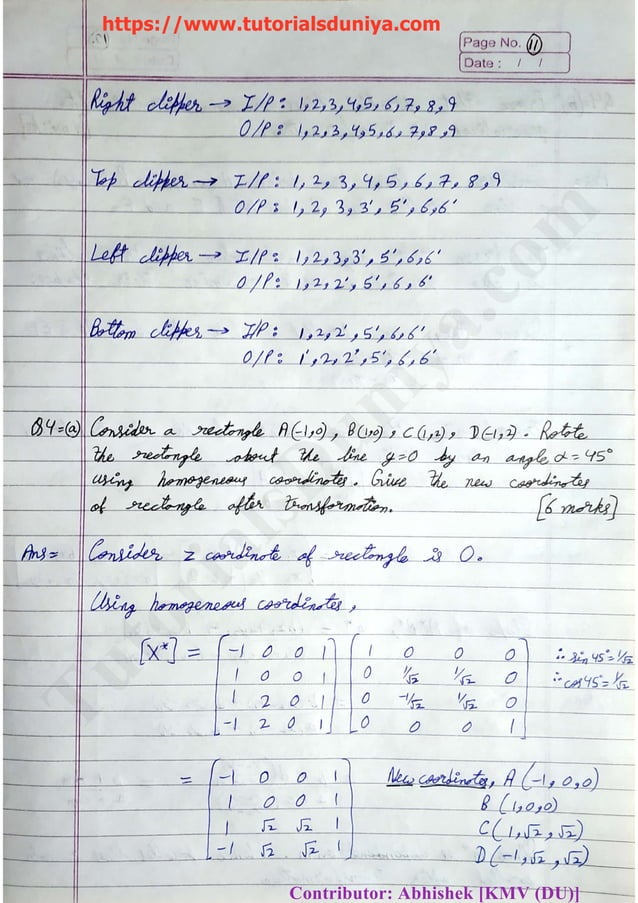 https://www.tutorialsduniya.com
Page No. 11
Date: / /
Right clipper → I/P: 1,2,3,4,5,6,7,8,9
O/P: 1,2,3,4,5,6,7,8,9
Top clipper → I/P: 1,2,3,4,5,6,7,8,9
O/P: 1,2,3,3',5',6,6'
Left clipper → I/P: 1,2,3,3',5',6,6'
O/P: 1,2,2',5',6,6'
Bottom clipper → I/P: 1,2,2',5',6,6'
O/P: 1',2,2",5',6,6'
Q4=(a) Consider a rectangle A(-1,0), B(1,0), C(1,2), D(-1,2). Rotate
the rectangle about the line y=0 by an angle α=45°
using homogeneous coordinates. Give the new coordinates
of rectangle after transformation. [6 marks]
Ans= Consider z coordinate of rectangle is 0.
Using homogeneous coordinates,
[X*] = [-1 0 0 1] [1 0 0 0] ∴ sin45°=1/√2
[1 0 0 1] [0 1/√2 1/√2 0] ∴ cos45°=1/√2
[1 2 0 1] [0 -1/√2 1/√2 0]
[-1 2 0 1] [0 0 0 1]
= [-1 0 0 1] New coordinates, A(-1,0,0)
[1 0 0 1] B(1,0,0)
[1 √2 √2 1] C(1,√2,√2)
[-1 √2 √2 1] D(-1,√2,√2)
Tutorialsduniya.com
Contributor: Abhishek [KMV (DU)]